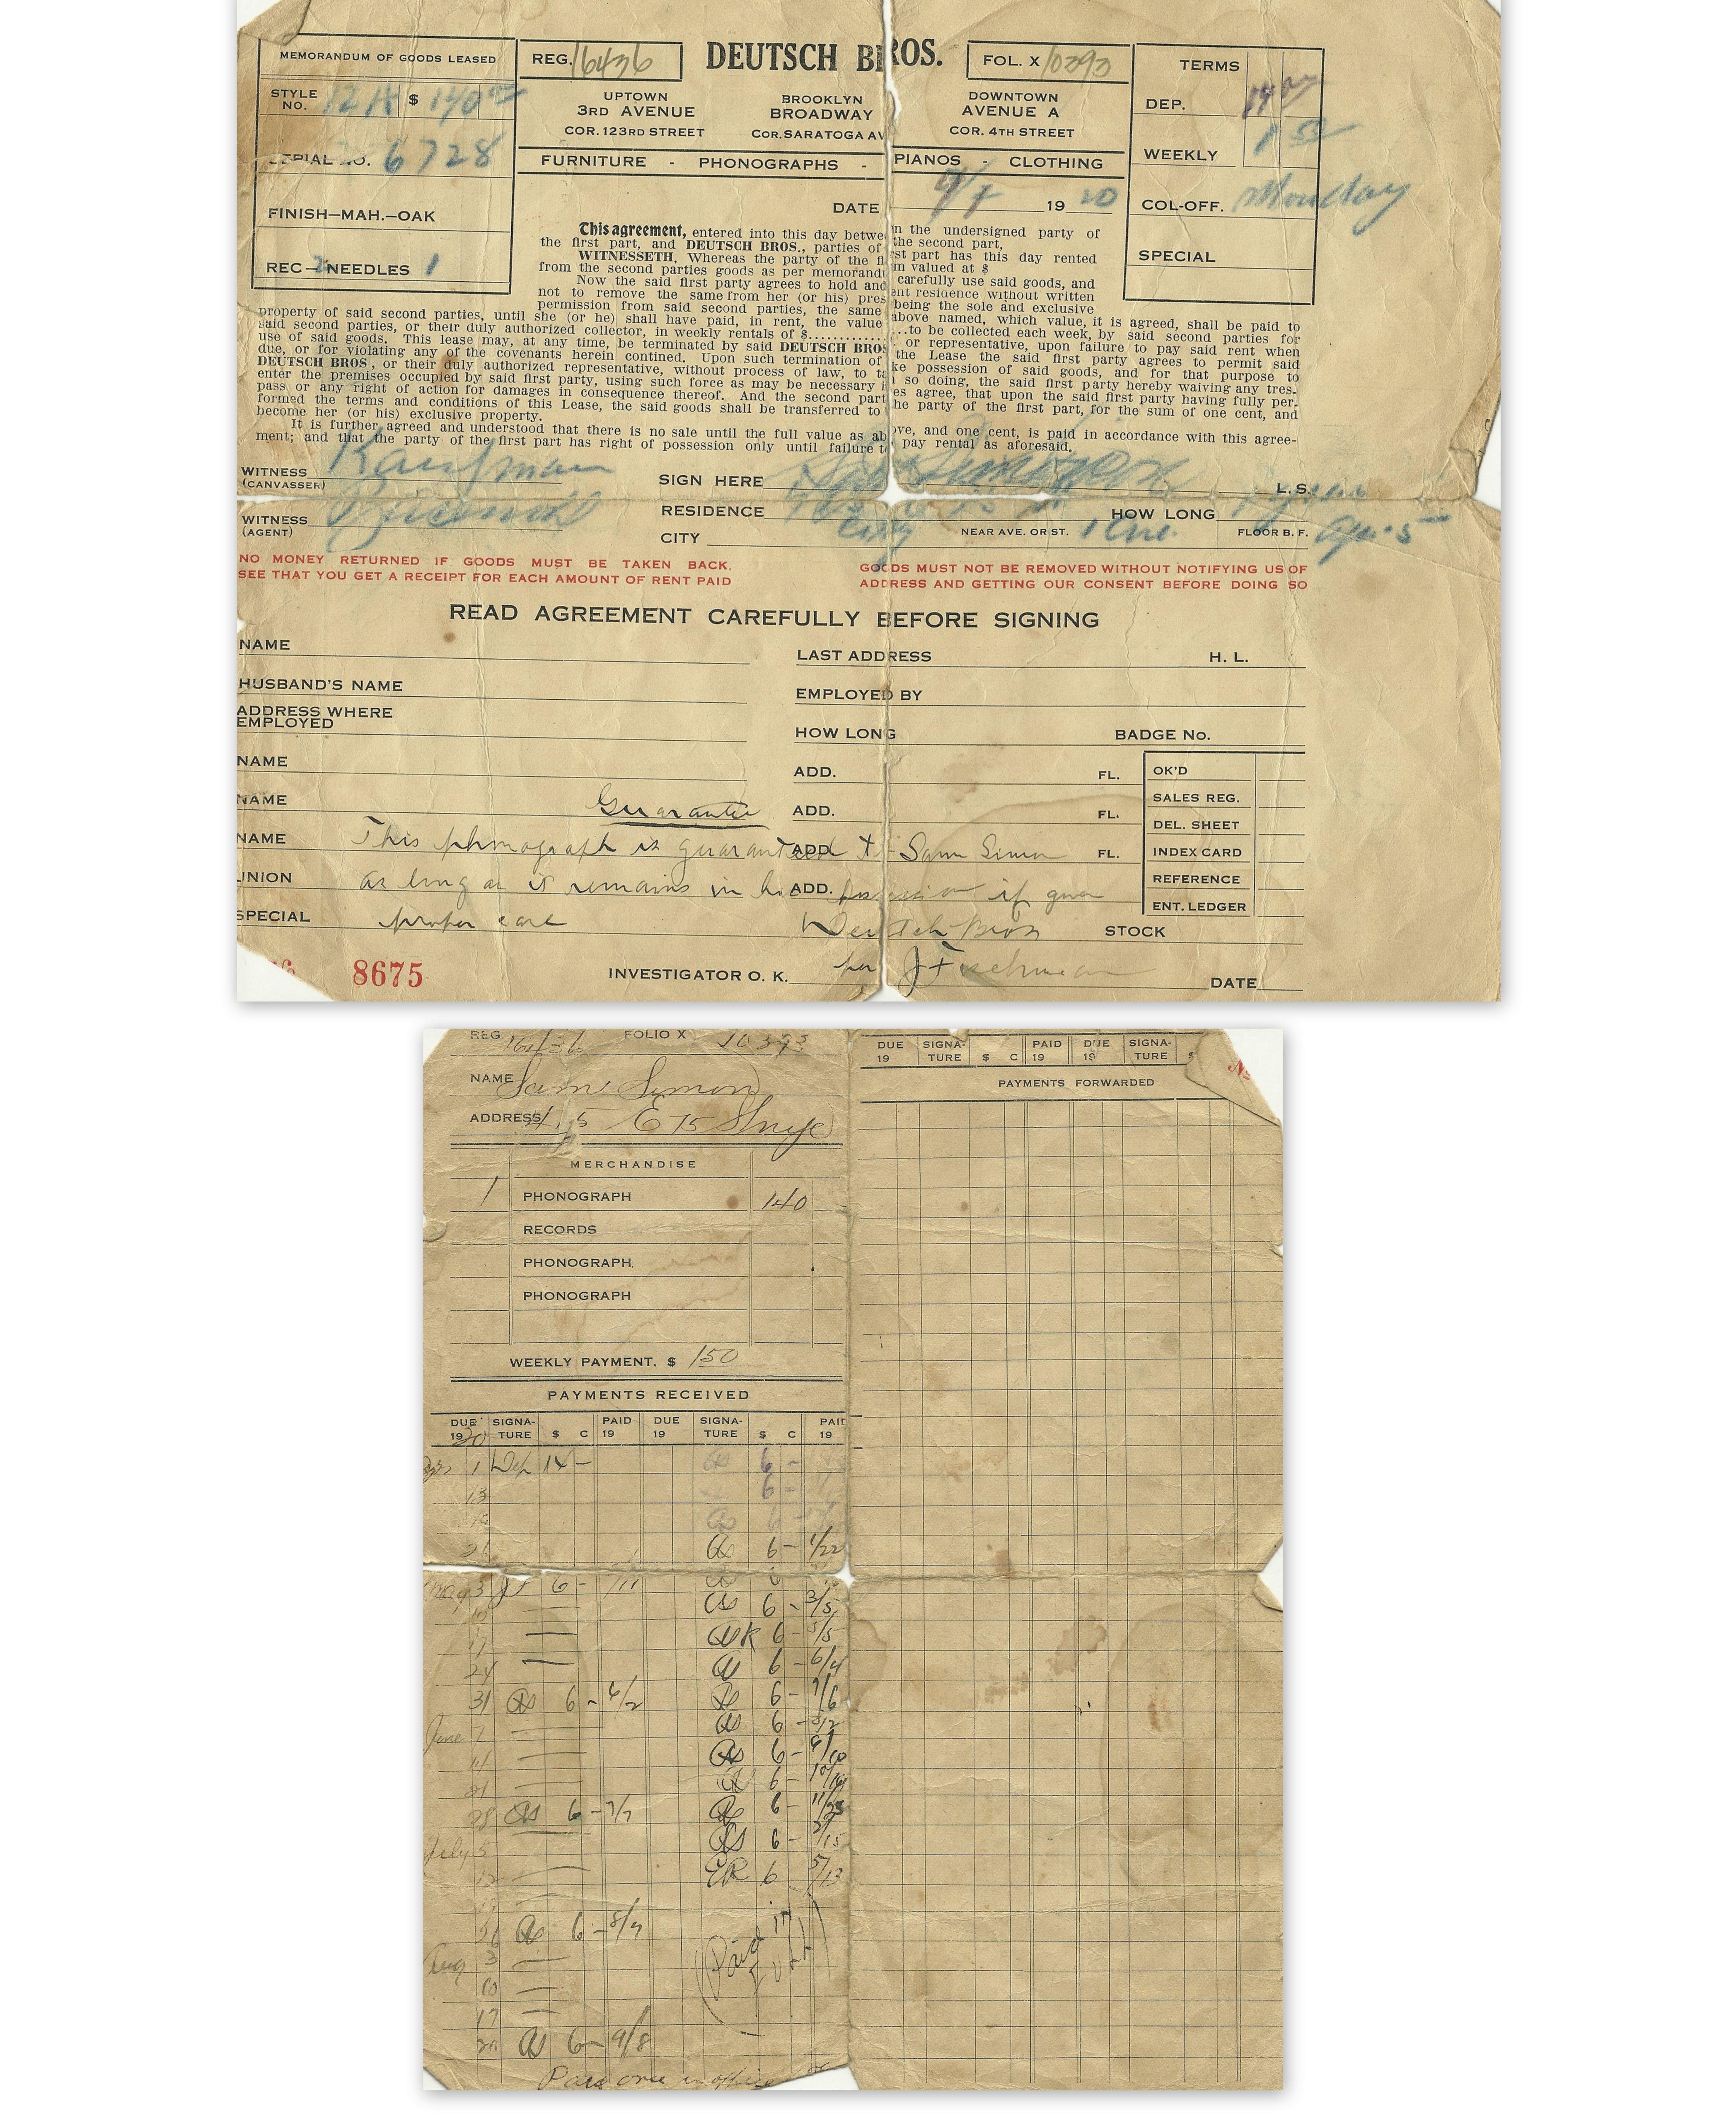 MEMORANDUM OF GOODS LEASED
STYLE NO. 12 A $ 140.00
SERIAL NO. 6728
FINISH—MAH.—OAK
REC—2 NEEDLES 1
REG. 16436
DEUTSCH BROS.
FOL. X 10393
UPTOWN
3RD AVENUE
COR. 123RD STREET
BROOKLYN
BROADWAY
COR. SARATOGA AV
DOWNTOWN
AVENUE A
COR. 4TH STREET
FURNITURE - PHONOGRAPHS - PIANOS - CLOTHING
TERMS
DEP. 14
WEEKLY 1 50
COL-OFF. Monday
SPECIAL
DATE 1920
This agreement, entered into this day between the undersigned party of
the first part, and DEUTSCH BROS., parties of the second part,
WITNESSETH, Whereas the party of the first part has this day rented
from the second parties goods as per memorandum valued at $
Now the said first party agrees to hold and carefully use said goods, and
not to remove the same from her (or his) present residence without written
permission from said second parties, the same being the sole and exclusive
property of said second parties, until she (or he) shall have paid, in rent, the value above named, which value, it is agreed, shall be paid to
said second parties, or their duly authorized collector, in weekly rentals of $...............to be collected each week, by said second parties for
use of said goods. This lease may, at any time, be terminated by said DEUTSCH BROS. or representative, upon failure to pay said rent when
due, or for violating any of the covenants herein contined. Upon such termination of the Lease the said first party agrees to permit said
DEUTSCH BROS, or their duly authorized representative, without process of law, to take possession of said goods, and for that purpose to
enter the premises occupied by said first party, using such force as may be necessary in so doing, the said first party hereby waiving any tres-
pass or any right of action for damages in consequence thereof. And the second parties agree, that upon the said first party having fully per-
formed the terms and conditions of this Lease, the said goods shall be transferred to the party of the first part, for the sum of one cent, and
become her (or his) exclusive property.
It is further agreed and understood that there is no sale until the full value as above, and one cent, is paid in accordance with this agree-
ment; and that the party of the first part has right of possession only until failure to pay rental as aforesaid.
WITNESS (CANVASSER) Kaufman
SIGN HERE L. S.
WITNESS (AGENT)
RESIDENCE
HOW LONG
CITY City NEAR AVE. OR ST. 1 Ave. FLOOR B. F. Ap. 5
NO MONEY RETURNED IF GOODS MUST BE TAKEN BACK.
SEE THAT YOU GET A RECEIPT FOR EACH AMOUNT OF RENT PAID
GOODS MUST NOT BE REMOVED WITHOUT NOTIFYING US OF
ADDRESS AND GETTING OUR CONSENT BEFORE DOING SO
READ AGREEMENT CAREFULLY BEFORE SIGNING
NAME
LAST ADDRESS H. L.
HUSBAND'S NAME
EMPLOYED BY
ADDRESS WHERE EMPLOYED
HOW LONG BADGE No.
NAME ADD. FL.
NAME ADD. FL.
NAME ADD. FL.
UNION ADD.
SPECIAL STOCK
OK'D
SALES REG.
DEL. SHEET
INDEX CARD
REFERENCE
ENT. LEDGER
Guarantee
This phonograph is guaranteed to Sam Simon
as long as it remains in his possession if given
proper care
Deutsch Bros
per J Fischman
8675
INVESTIGATOR O. K. DATE
REG. 16436 FOLIO X 10393
NAME Sam Simon
ADDRESS 415 E 75
MERCHANDISE
1 PHONOGRAPH 140
RECORDS
PHONOGRAPH
PHONOGRAPH
WEEKLY PAYMENT, $ 150
PAYMENTS RECEIVED
DUE 1920 SIGNA-TURE $ C PAID 19 DUE 19 SIGNA-TURE $ C PAID 19
1 Dep 14 — 6 —
13 6 —
19 6 —
26 6 — 1/22
May 3 JF 6 — /11
10 6 — 3/5
17 6 — 5/5
24 6 — 6/4
31 6 — 6/2 6 — 7/6
June 7 6 —
14 6 — 9/10
21 6 —
28 6 — 7/7 6 — 11/23
July 5 6 — 2/15
12 ER 6 5/13
26 6 — 8/7
Aug 3
10
17
6 — 9/8
Paid in Full
Paid one in office
DUE 19 SIGNA-TURE $ C PAID 19 DUE 19 SIGNA-TURE $
No
PAYMENTS FORWARDED